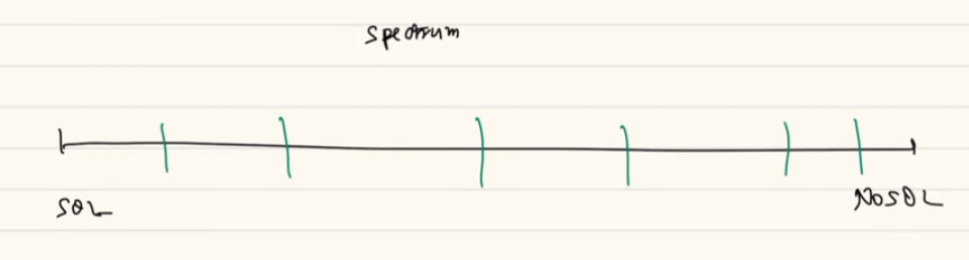 Spectrum
SQL
NoSQL